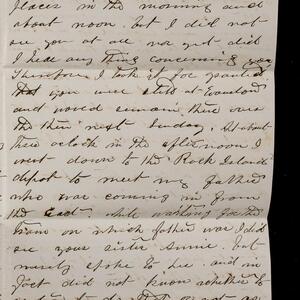 places in the morning and
about noon. but I did not
see you at all nor yet did
I hear any thing concerning you
Therefore I took it for granted
that you were still at Evanston
and would remain there over
the then next Sunday. But about
three oclock in the afternoon I
went down to the Rock Island
depot to meet my father
who was coming in from
the East. while waiting for the
train on which father was I did
see your sister Annie. but
merely spoke to her and in
fact did not know whether to